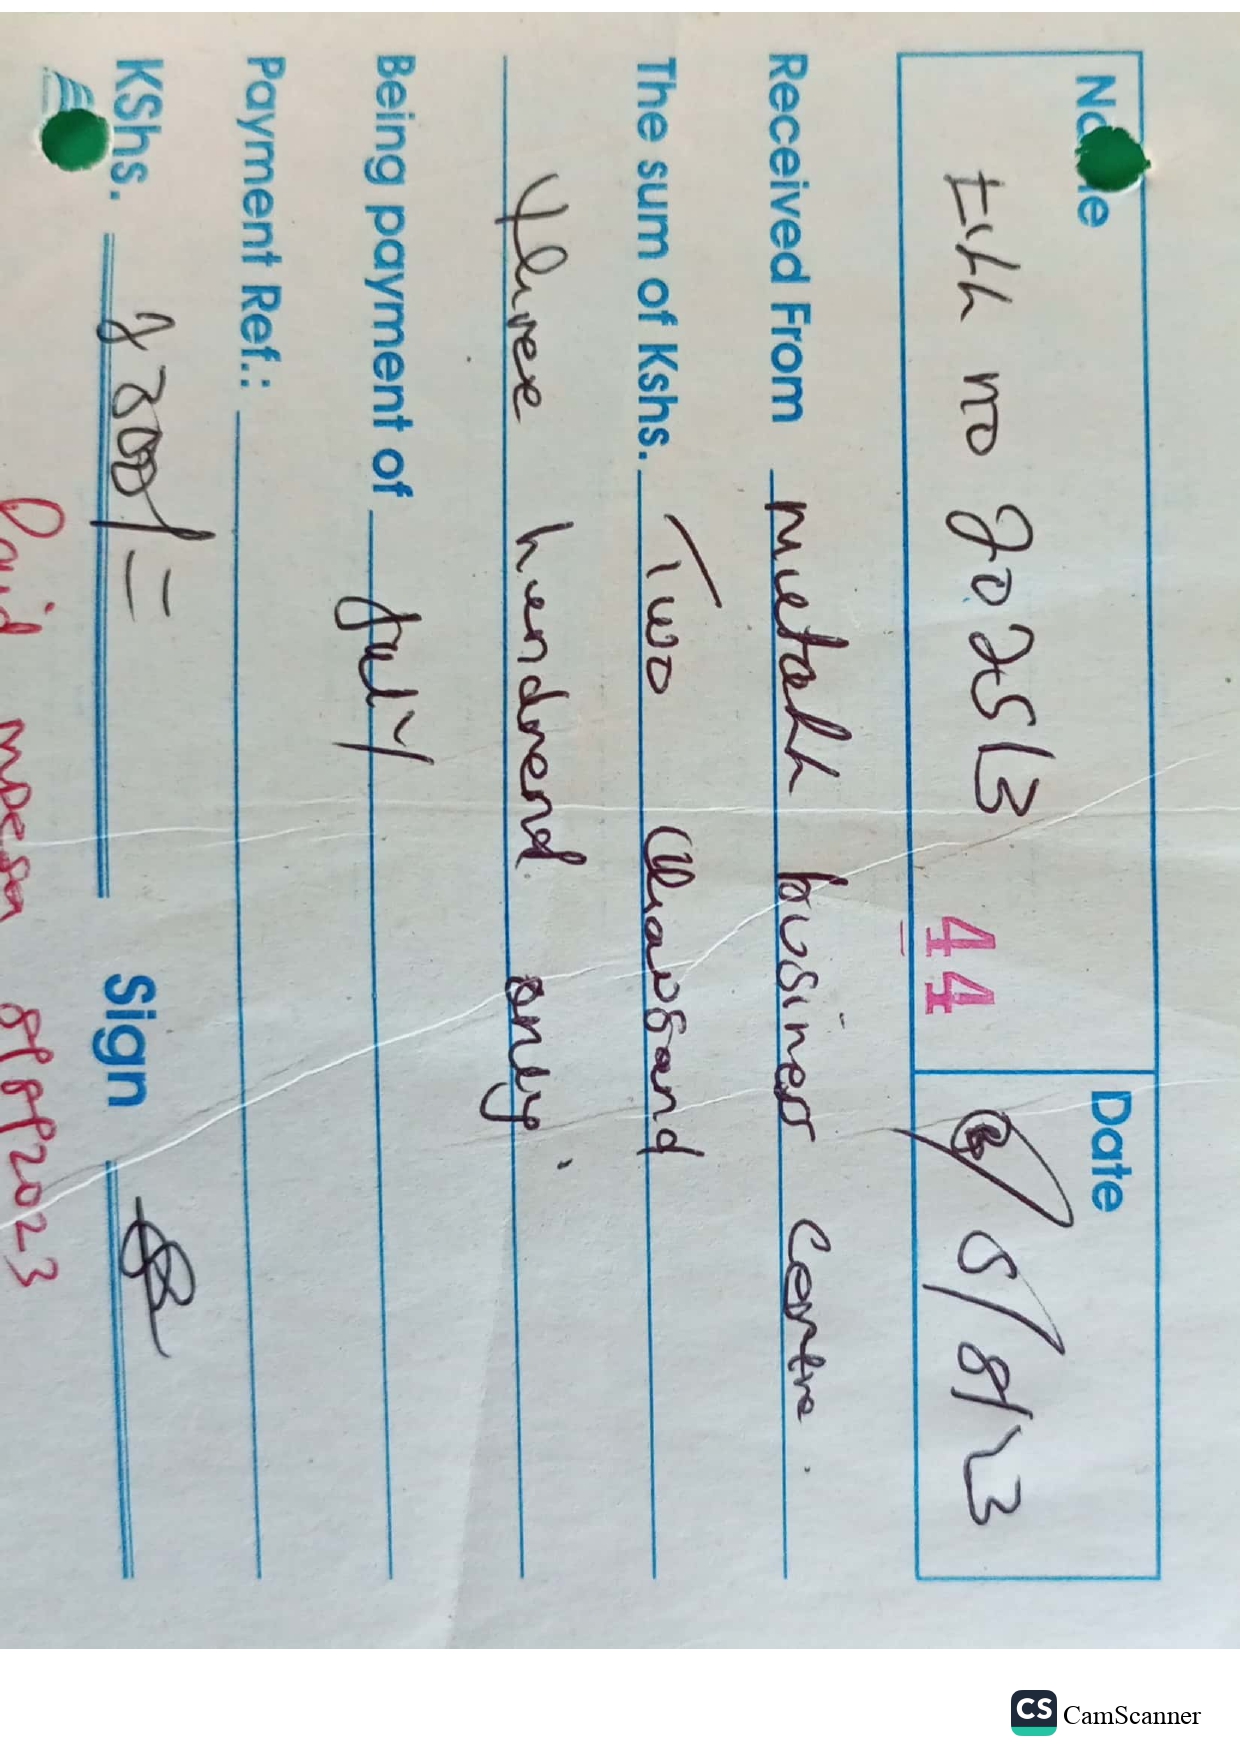 Name
Date
no 202513
44
5/8/23
Received From mutahh business Centre.
The sum of Kshs. Two thousand
three hundrend only.
Being payment of July
Payment Ref.:
KShs. 2300/=
Sign
Paid mpesa 8/8/2023
CS CamScanner